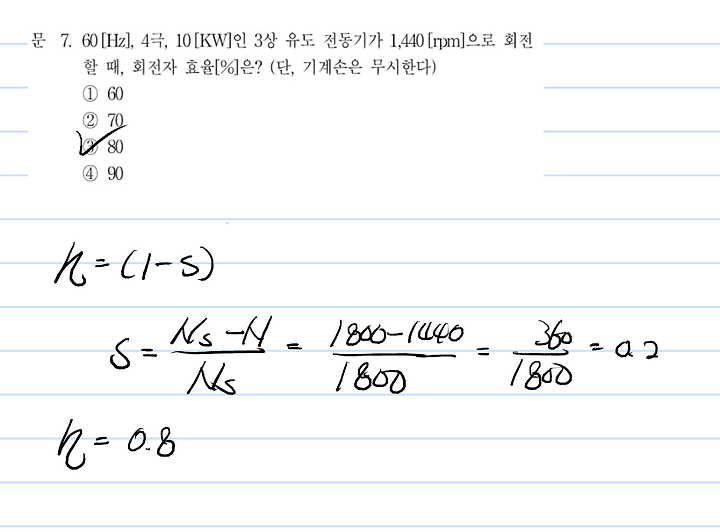 문 7. 60[Hz], 4극, 10[KW]인 3상 유도 전동기가 1,440[rpm]으로 회전
할 때, 회전자 효율[%]은? (단, 기계손은 무시한다)
① 60
② 70
③ 80
④ 90
η = (1-S)
S = \frac{Ns-N}{Ns} = \frac{1800-1440}{1800} = \frac{360}{1800} = 0.2
η = 0.8